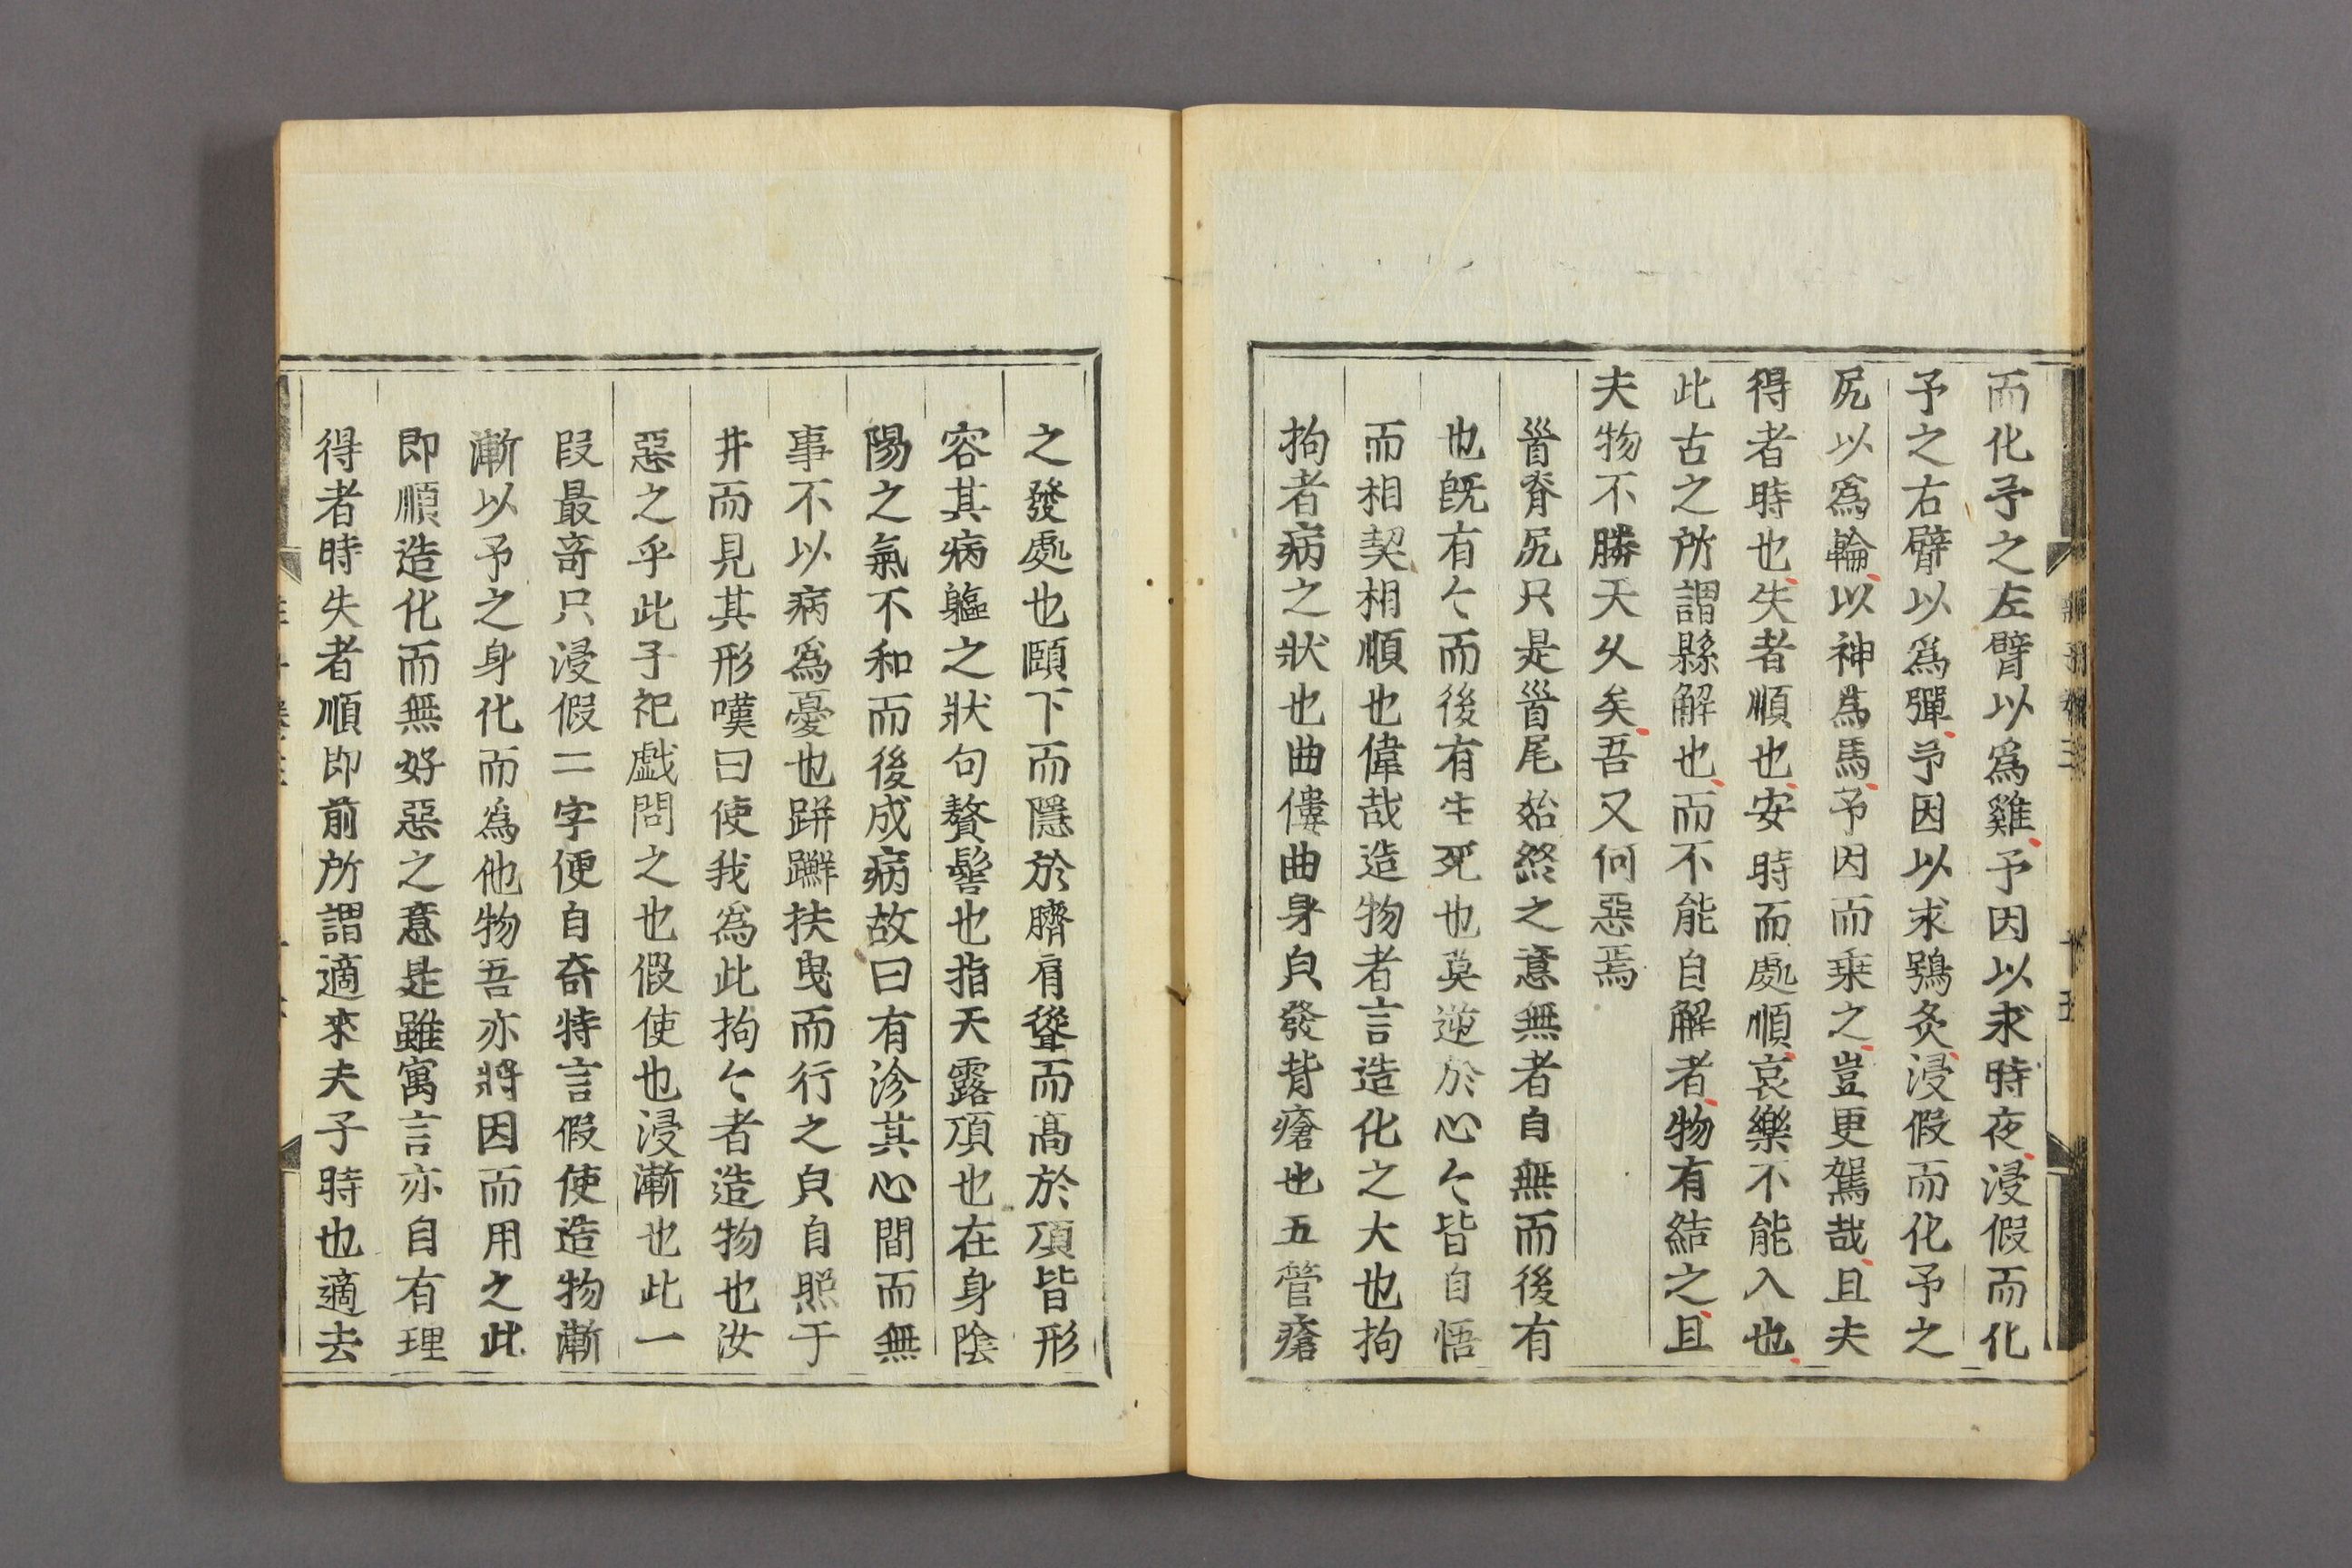 而化予之左臂以爲雞予因以求時夜浸假而化
予之右臂以爲彈予因以求鴞炙浸假而化予之
尻以爲輪以神爲馬予因而乗之豈更駕哉且夫
得者時也失者順也安時而處順哀樂不能入也
此古之所謂縣解也而不能自解者物有結之且
夫物不勝天久矣吾又何惡焉
首脊尻只是首尾始終之意無者自無而後有
也旣有〻而後有生死也莫逆於心〻皆自悟
而相契相順也偉哉造物者言造化之大也拘
拘者病之狀也曲僂曲身㒵發背瘡也五管瘡
之發處也頤下而隱於臍肩聳而髙於項皆形
容其病軀之狀句贅髻也指天露項也在身陰
陽之氣不和而後成病故曰有沴其心間而無
事不以病爲憂也跰𨇤扶曳而行之㒵自照于
井而見其形嘆曰使我爲此拘〻者造物也汝
惡之乎此子祀戲問之也假使也浸漸也此一
段最竒只浸假二字便自奇特言假使造物漸
漸以予之身化而為他物吾亦將因而用之此
即順造化而無好惡之意是雖寓言亦自有理
得者時失者順即前所謂適來夫子時也適去